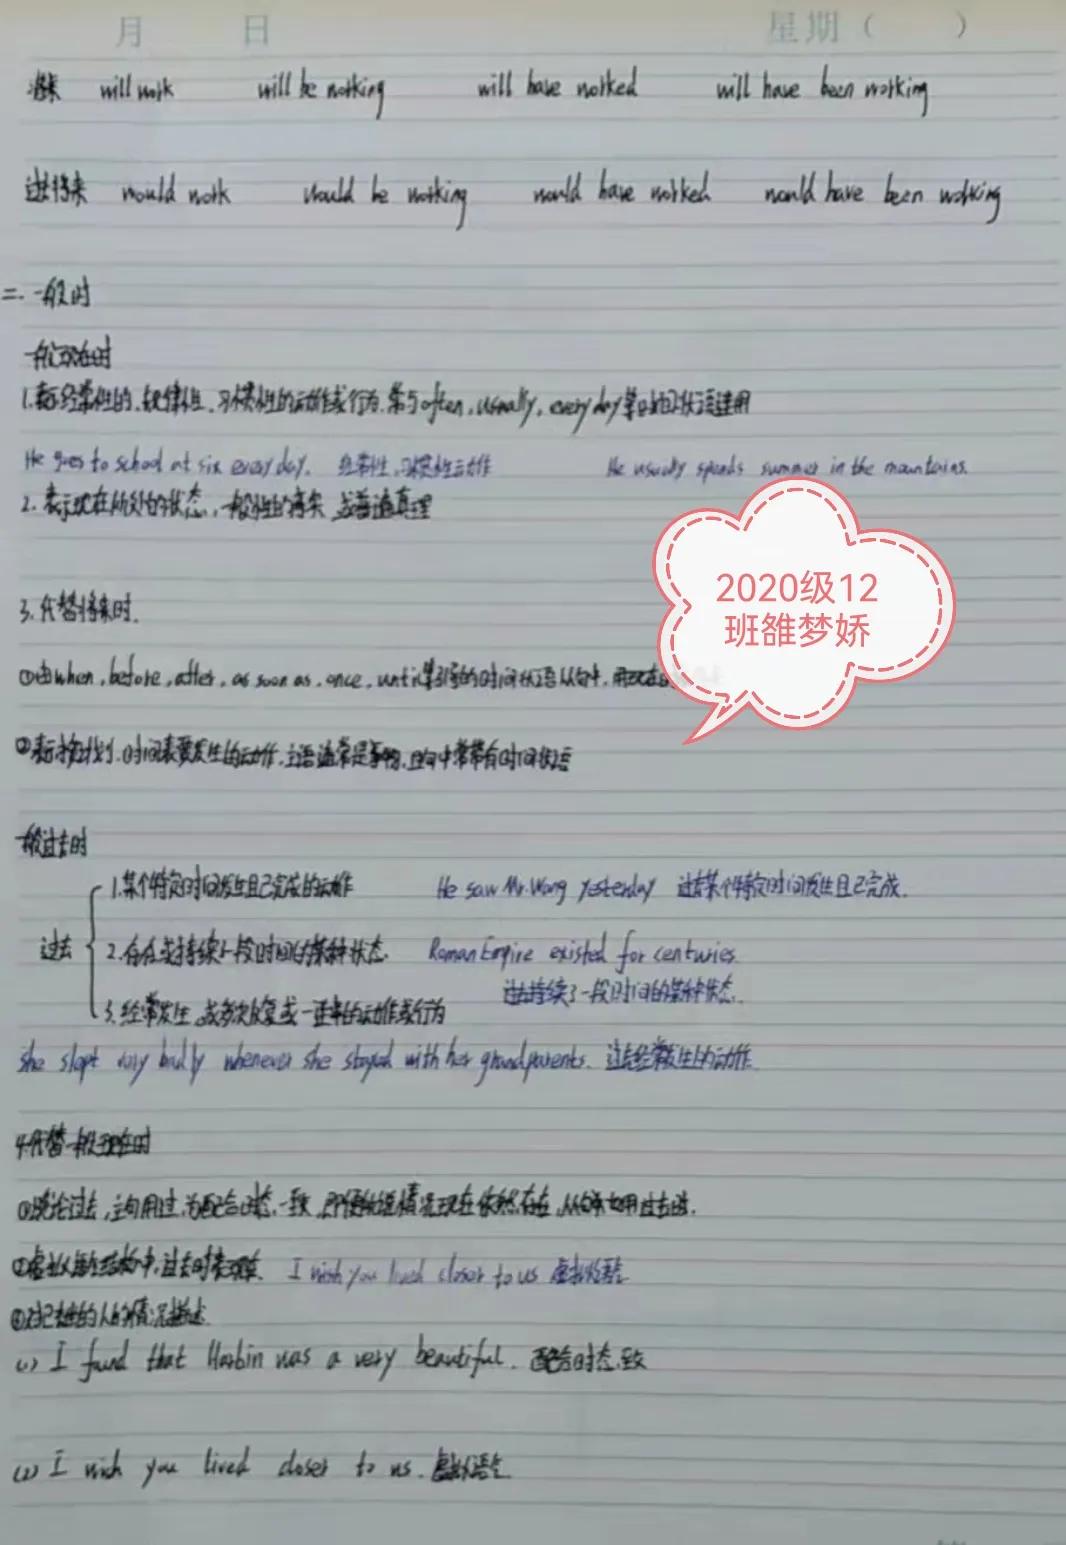 月 日 星期（ ）
将来 will work will be working will have worked will have been working
过去将来 would work would be working would have worked would have been working
二. 一般时
一般现在时
1.表示经常性的、规律性、习惯性的动作或行为.常与often, usually, every day等时间状语连用
He goes to school at six every day. 经常性、习惯性动作 He usually spends summer in the mountains.
2. 表示现在所处的状态，一般性的事实，或普遍真理
2020级12
班雒梦娇
3. 代替将来时.
①由when, before, after, as soon as, once, until等引导的时间状语从句中，用现在
②表示按计划、时间表要发生的动作，主语通常是事物，且句中常带有时间状语
一般过去时
过去
1.某个特定时间发生且已完成的动作 He saw Mr.Wang yesterday 过去某个特定时间发生且已完成.
2.存在或持续了一段时间的某种状态. Roman Empire existed for centuries.
过去持续了一段时间的某种状态.
3.经常发生，或多次反复或一连串的动作或行为
she slept very badly whenever she stayed with her grandparents. 过去经常发生的动作.
4.代替一般现在时
①谈论过去，主句用过，为配合时态一致，即便叙述情况现在依然存在，从句用过去时.
②虚拟结构中，过去时表现在. I wish you lived closer to us 虚拟语气
③对已去世的人的情况描述.
(1) I found that Harbin was a very beautiful. 配合时态一致
(2) I wish you lived closer to us. 虚拟语气